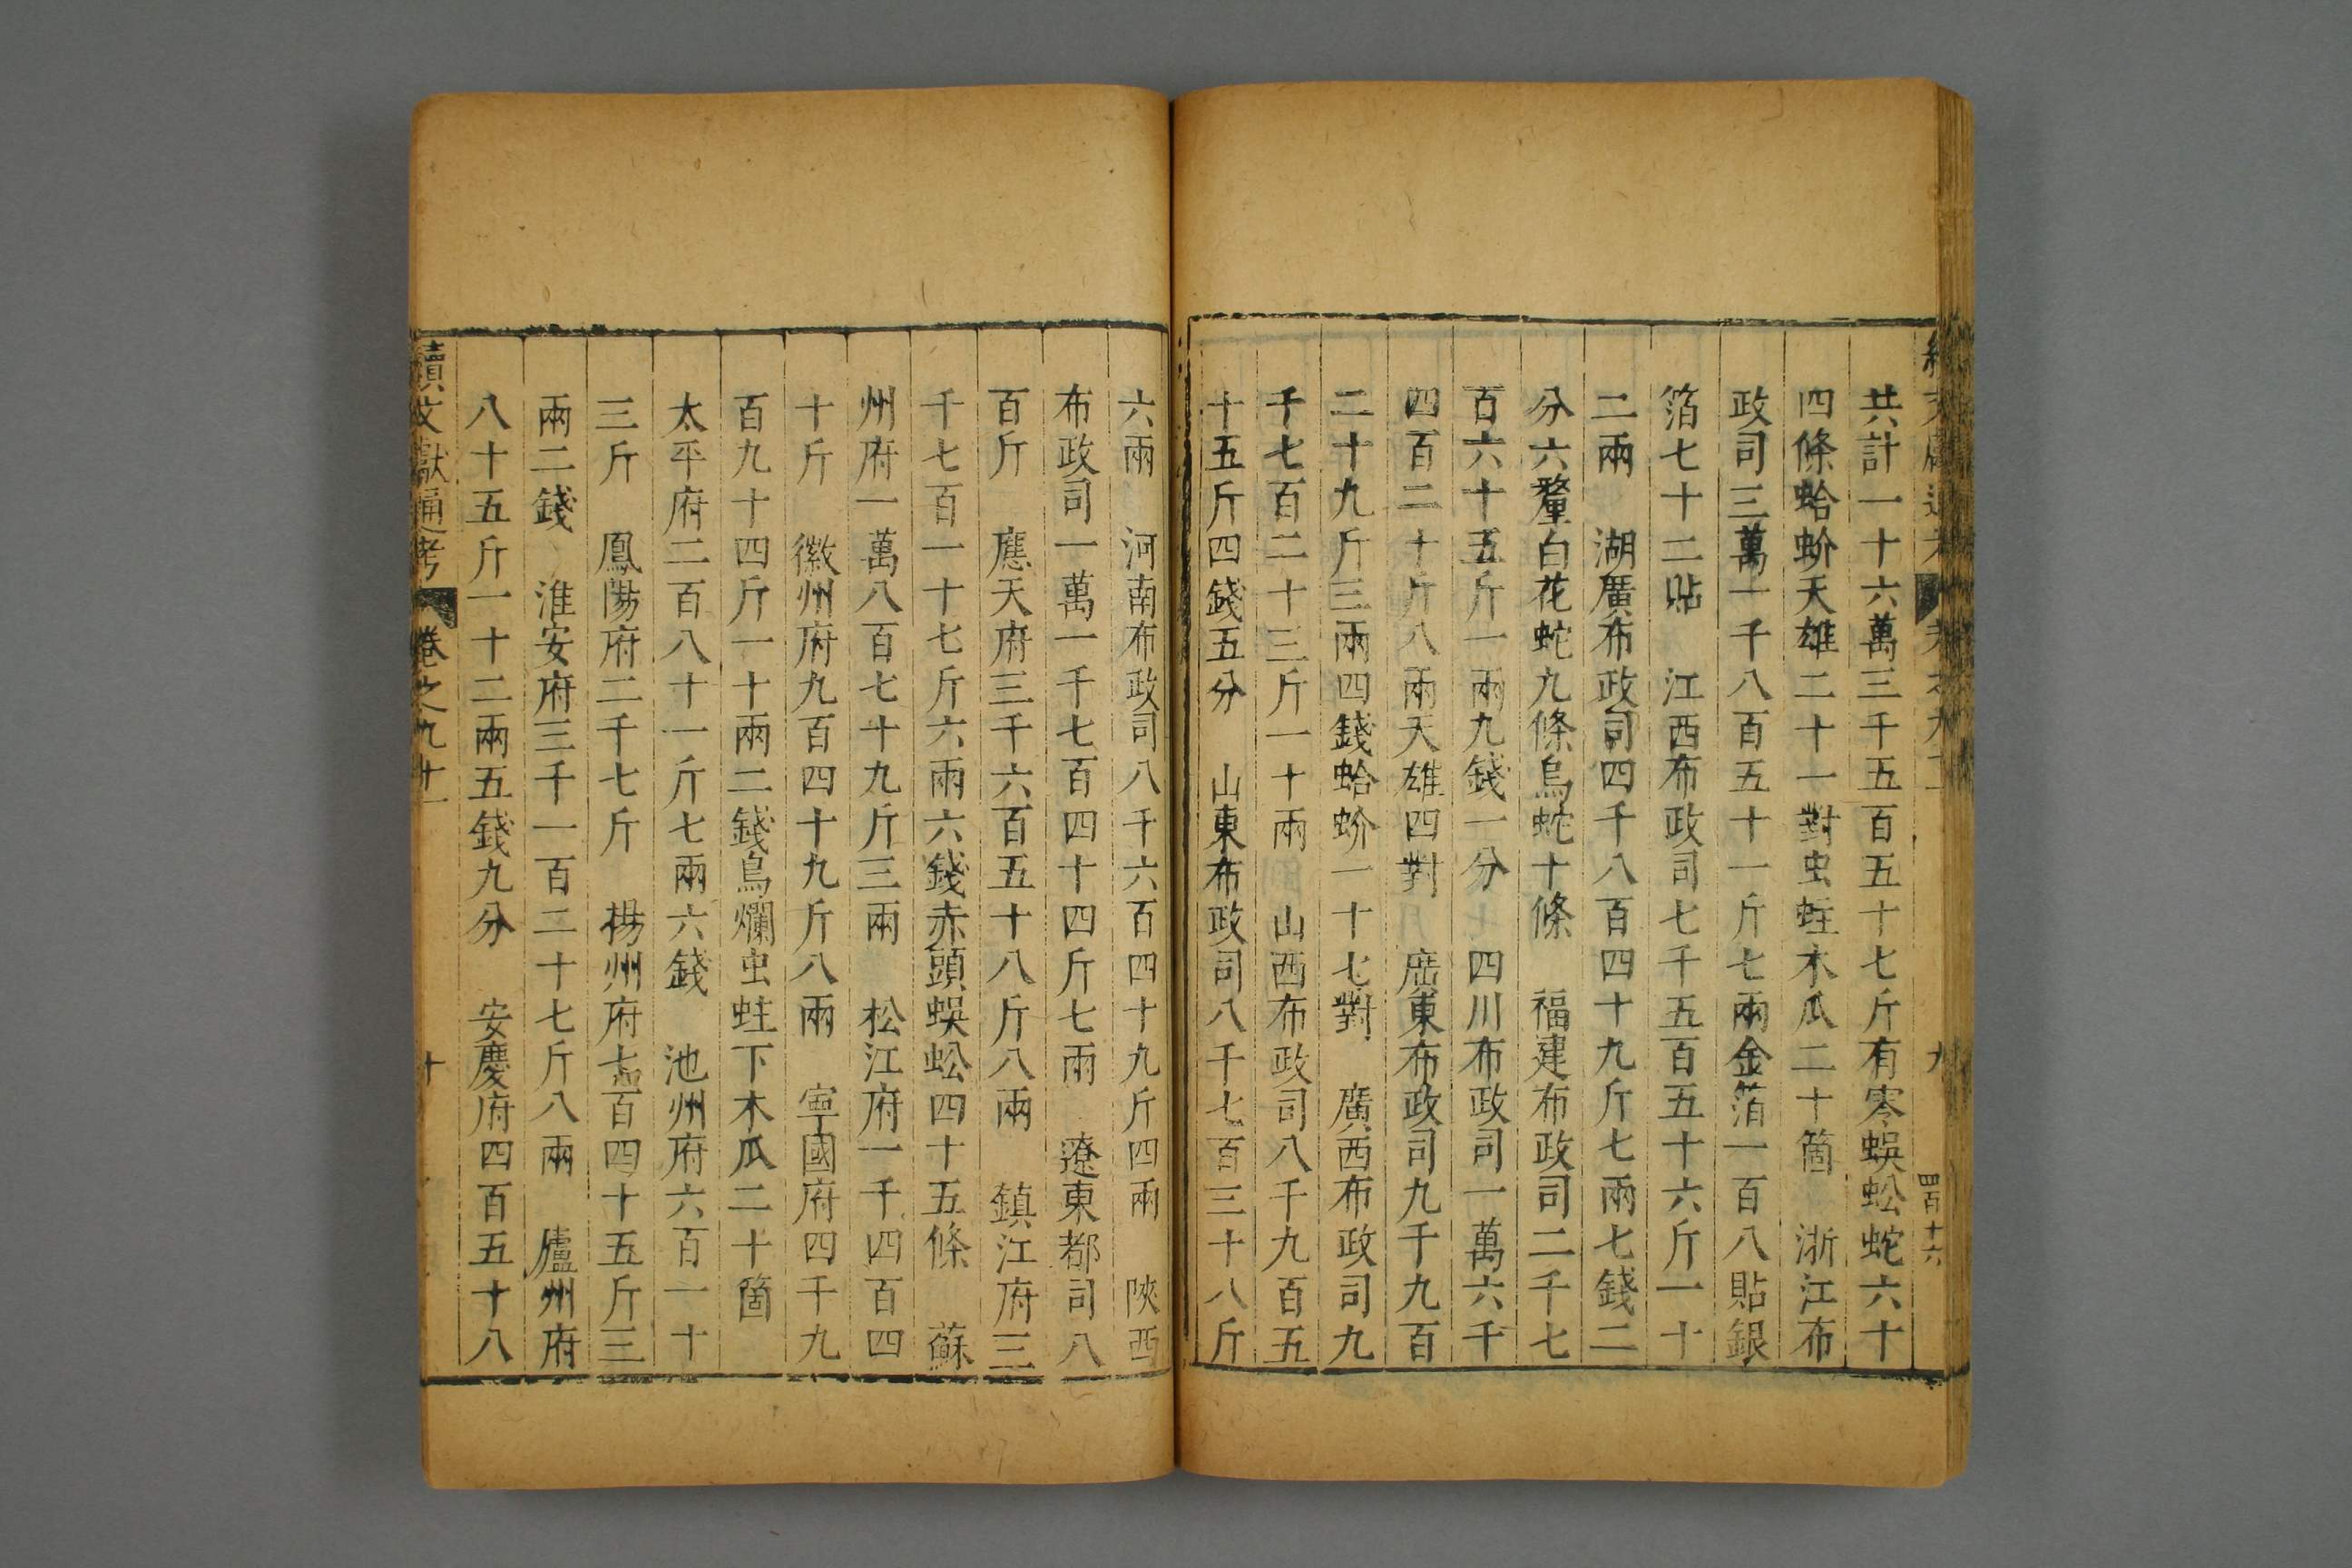 共計一十六萬三千五百五十七斤有零蜈蚣蛇六十
四條蛤蚧天雄二十一對虫蛀木瓜二十箇　浙江布
政司三萬一千八百五十一斤七兩金箔一百八貼銀
箔七十二貼　江西布政司七千五百五十六斤一十
二兩　湖廣布政司四千八百四十九斤七兩七錢二
分六釐白花蛇九條烏蛇十條　福建布政司二千七
百六十五斤一兩九錢一分　四川布政司一萬六千
四百二十斤八兩天雄四對　廣東布政司九千九百
二十九斤三兩四錢蛤蚧一十七對　廣西布政司九
千七百二十三斤一十兩　山西布政司八千九百五
十五斤四錢五分　山東布政司八千七百三十八斤
六兩　河南布政司八千六百四十九斤四兩　陝西
布政司一萬一千七百四十四斤七兩　遼東都司八
百斤　應天府三千六百五十八斤八兩　鎮江府三
千七百一十七斤六兩六錢赤頭蜈蚣四十五條　蘇
州府一萬八百七十九斤三兩　松江府一千四百四
十斤　徽州府九百四十九斤八兩　寧國府四千九
百九十四斤一十兩二錢烏爛虫蛀下木瓜二十箇
太平府二百八十一斤七兩六錢　池州府六百一十
三斤　鳳陽府二千七斤　楊州府七百四十五斤三
兩二錢　淮安府三千一百二十七斤八兩　廬州府
八十五斤一十二兩五錢九分　安慶府四百五十八
續文獻通考　卷之九十一　十